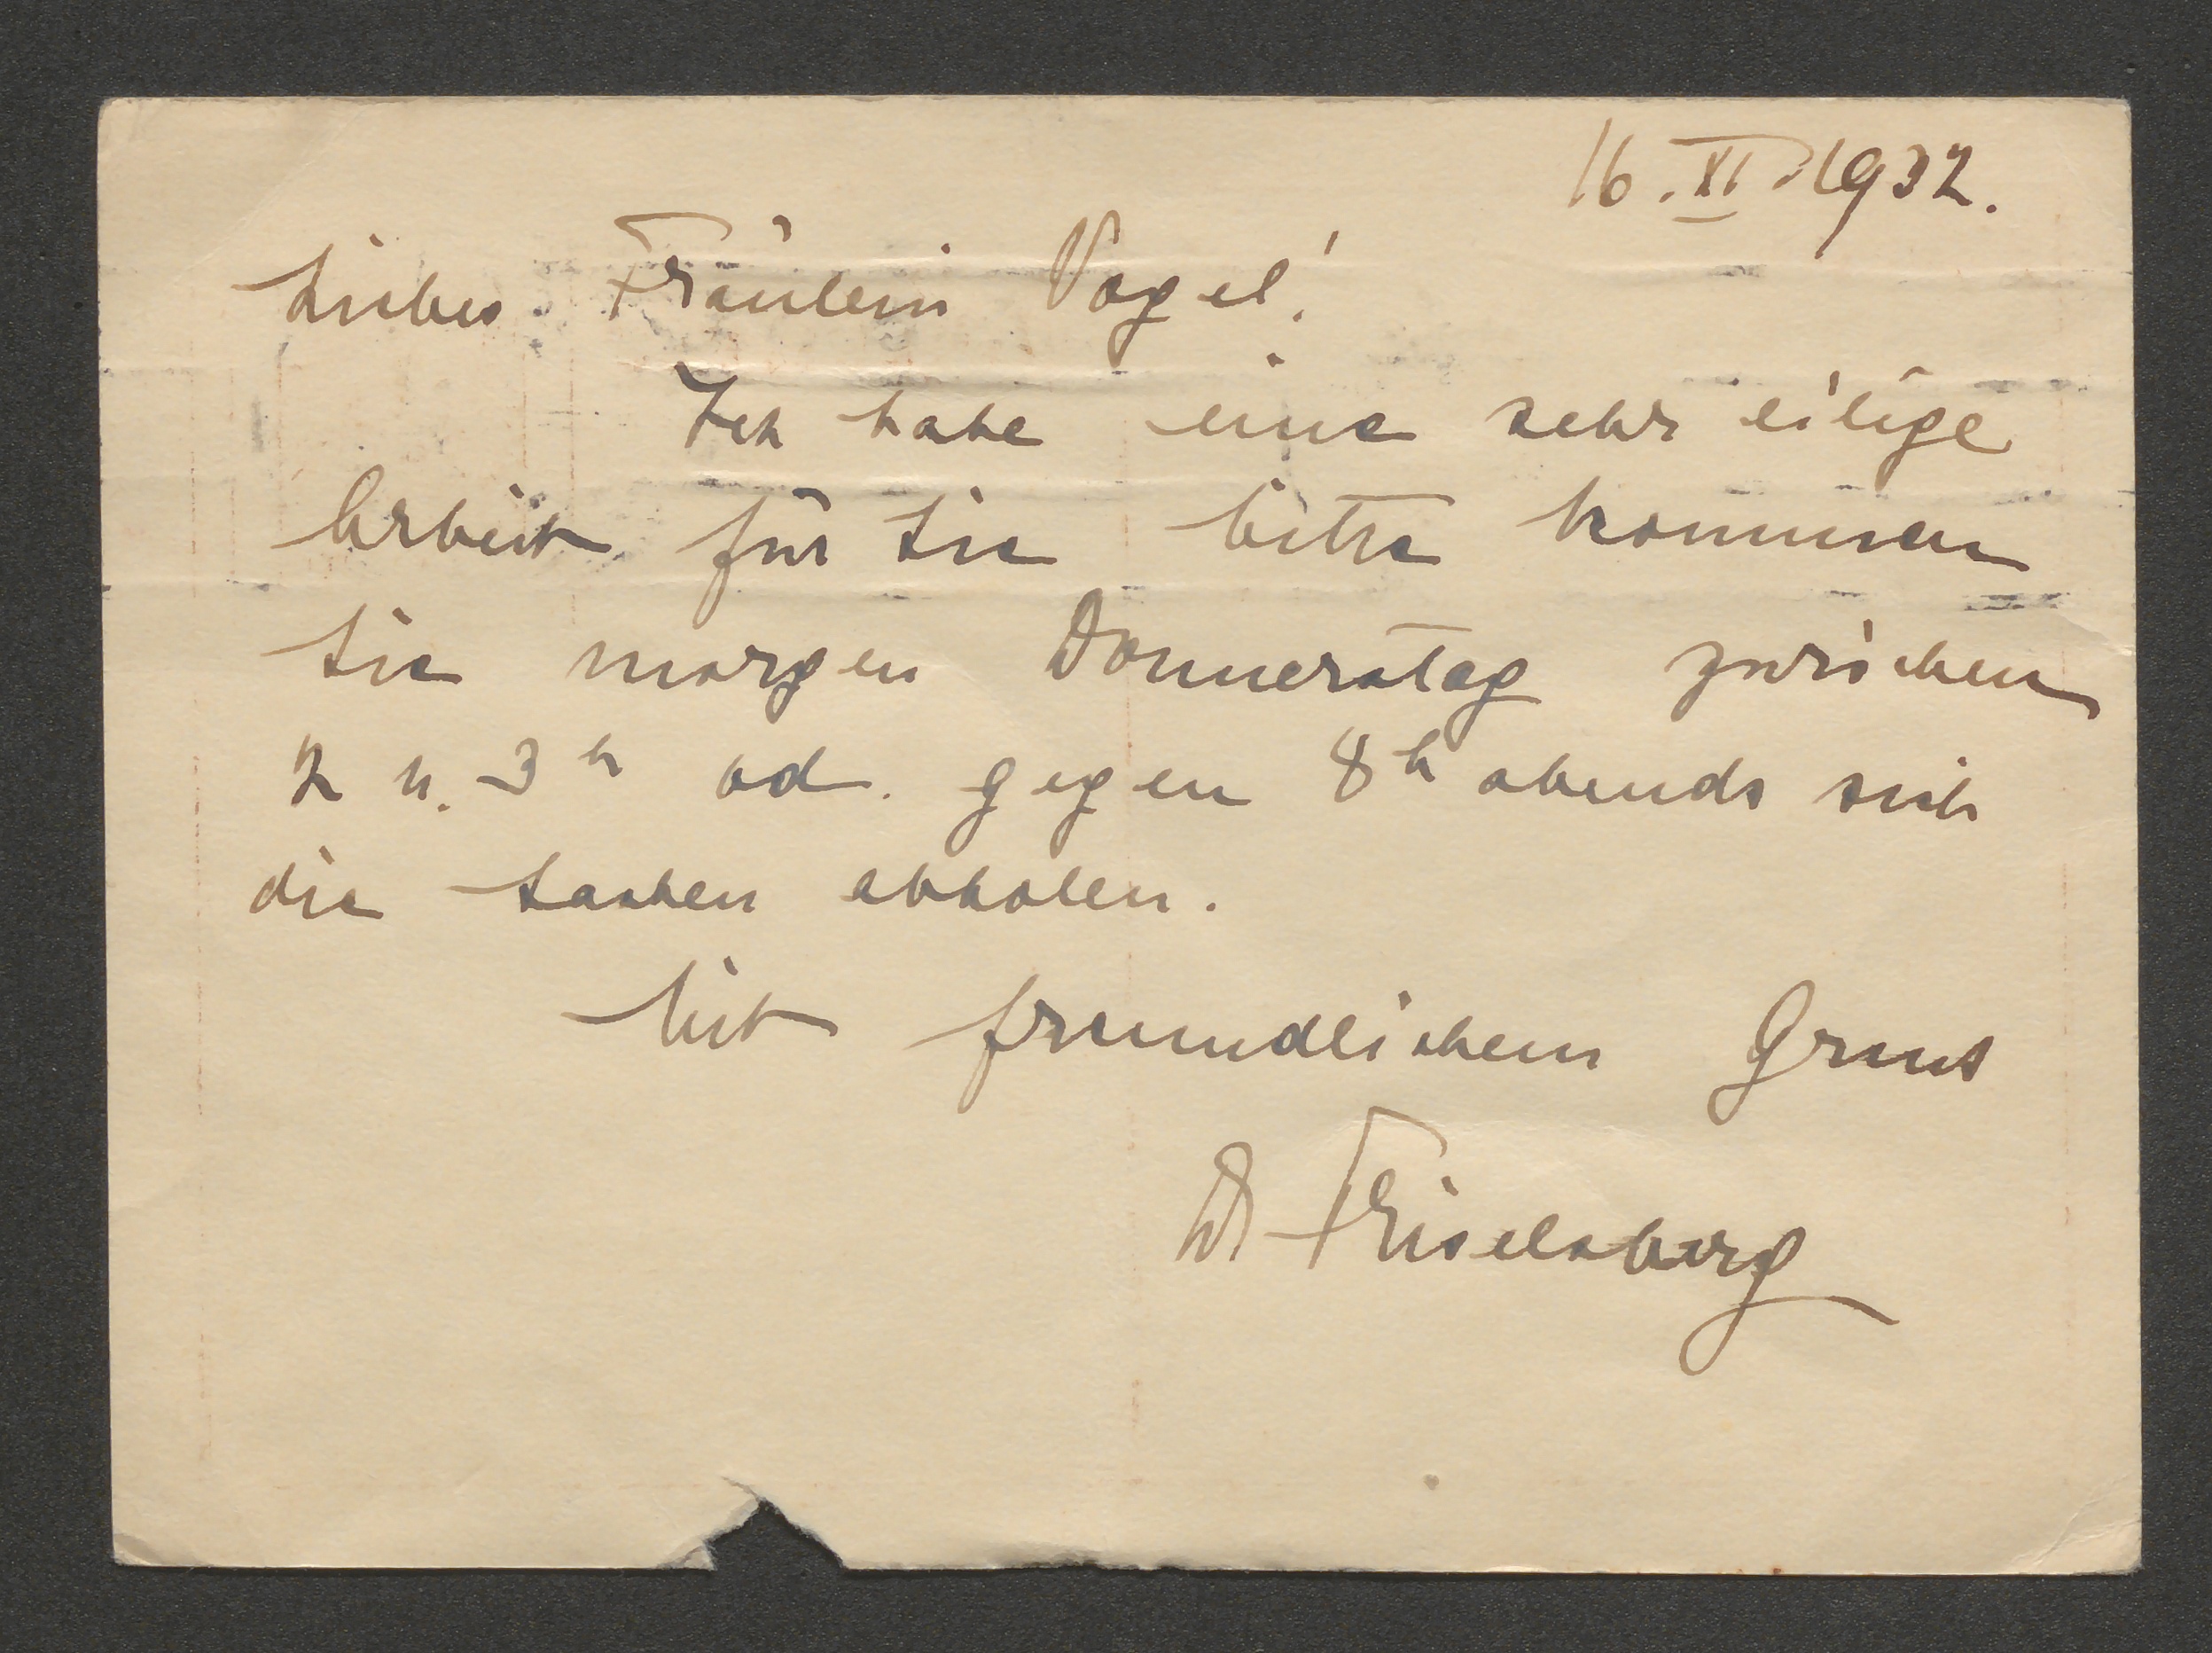 16. XI. 1932.
Liebes Fräulein Vogel!
Ich habe eine sehr eilige
Arbeit für Sie bitte kommen
Sie morgen Donnerstag zwischen
2 u. 3 h od. gegen 8 h abends sich
die Sachen abholen.
Mit freundlichem Gruss
Dr